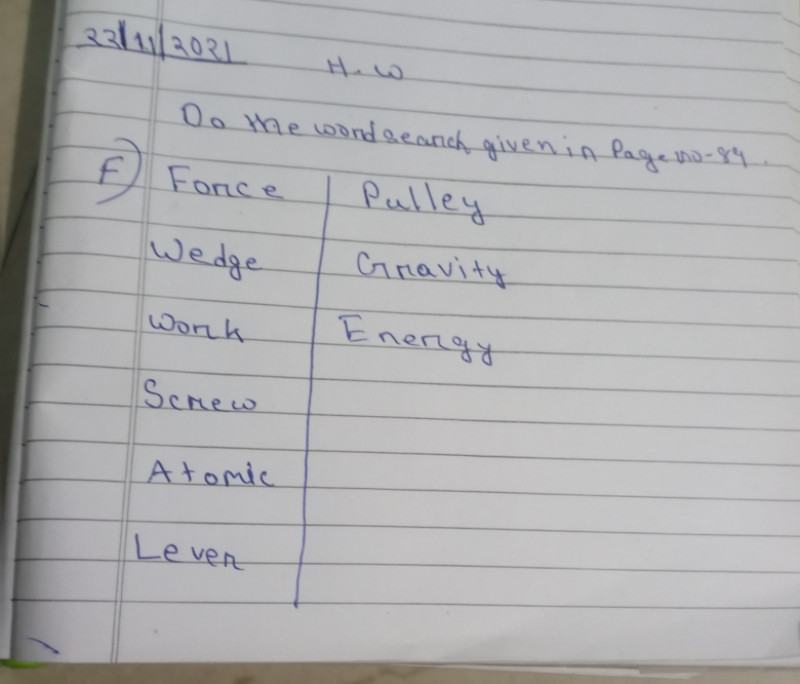 22/11/2021
H.W
Do the wordsearch given in Page no-89.
F) Force | Pulley
Wedge | Gravity
Work | Energy
Screw
Atomic
Lever